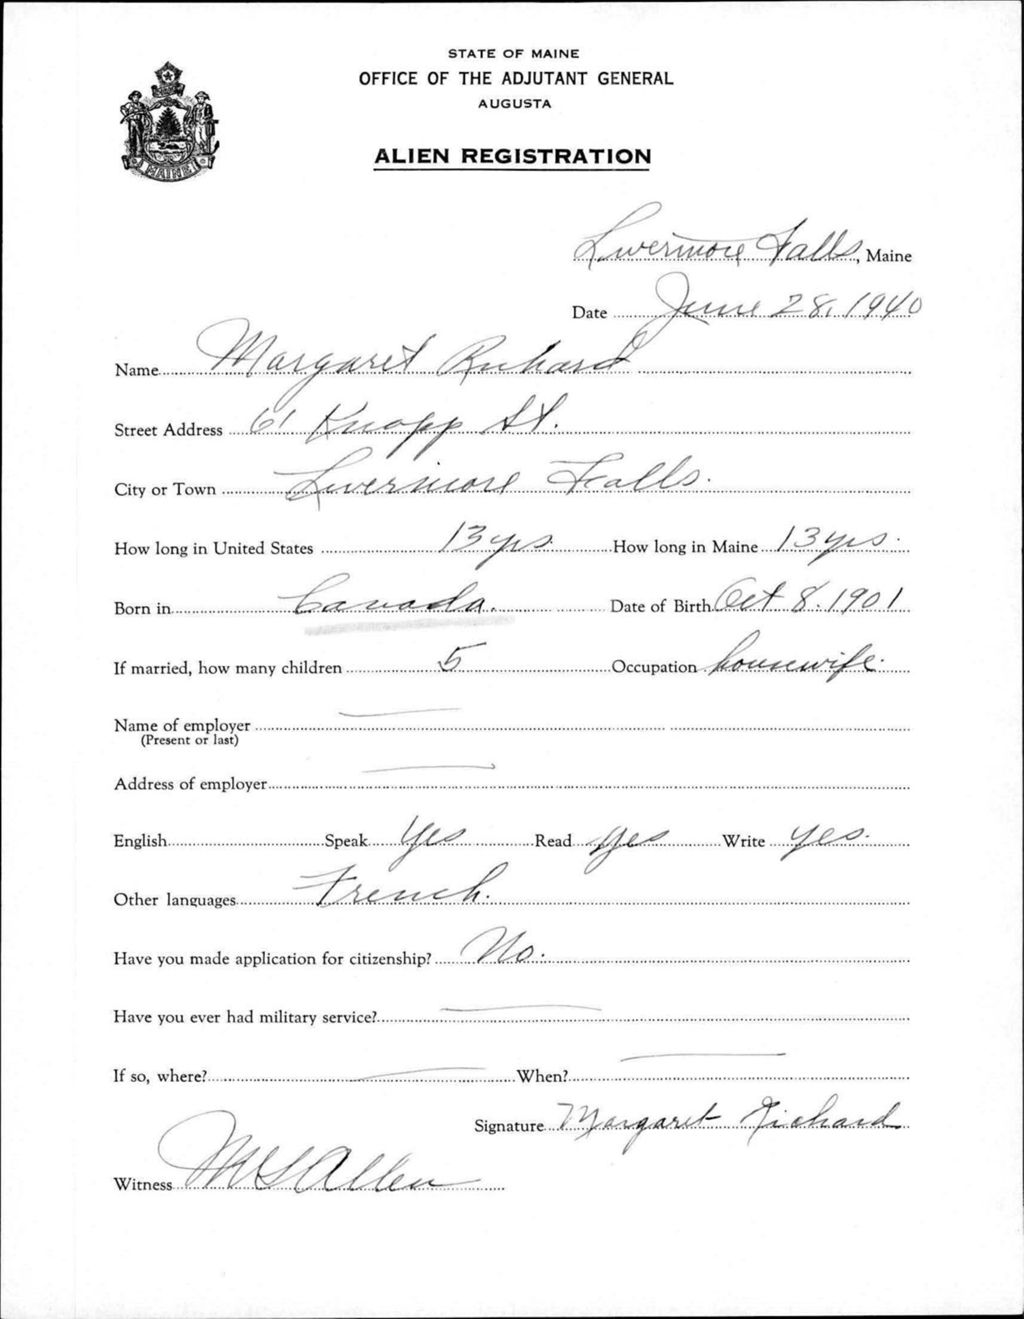 STATE OF MAINE
OFFICE OF THE ADJUTANT GENERAL
AUGUSTA
ALIEN REGISTRATION
MAINE
Livermore Falls, Maine
Date June 28, 1940
Name Margaret Richard
Street Address 61 Knapp St.
City or Town Livermore Falls.
How long in United States 13 yrs. How long in Maine 13 yrs.
Born in Canada. Date of Birth Oct 8. 1901
If married, how many children 5 Occupation housewife.
Name of employer
(Present or last)
Address of employer
English Speak Yes Read yes Write yes.
Other languages French.
Have you made application for citizenship? No.
Have you ever had military service?
If so, where? When?
Signature Margaret Richard
Witness Allen